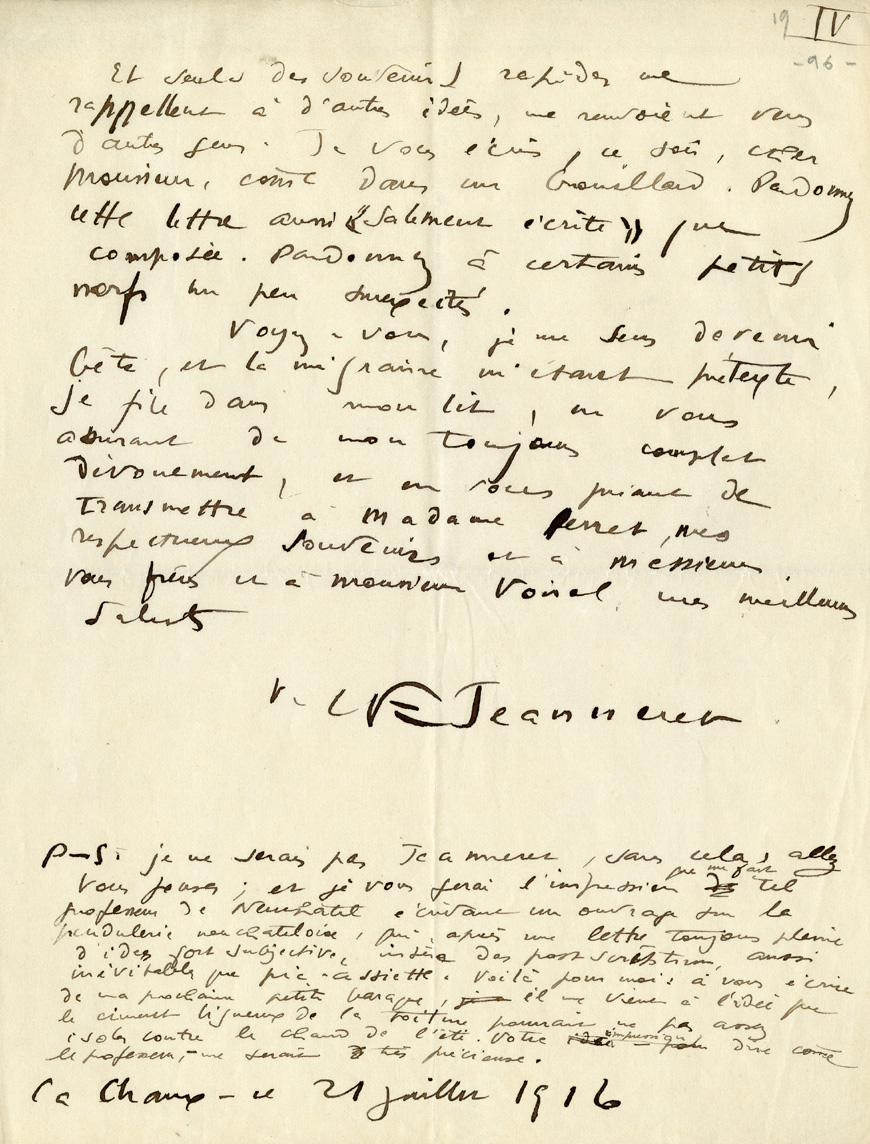 19 IV
-96-
Et seuls des souvenirs rapides me
rappellent à d'autres idées, me renvoient vers
d'autres gens. Je vous écris, ce soir, cher
Monsieur, comme dans un brouillard. Pardonnez
cette lettre aussi «salement écrite» que
composée. Pardonnez à certains petits
nerfs un peu surexcités.
Voyez-vous, je me sens devenir
bête, et la migraine m'étant prétexte,
je file dans mon lit, en vous
assurant de mon toujours complet
dévouement, et en vous priant de
transmettre à Madame Perret, mes
respectueux souvenirs et à messieurs
vos frères et à monsieur Voirol mes meilleures
Saluts
Jeanneret
P-S: je ne serais pas Jeanneret, sans cela, allez
vous penser; et je vous ferai l'impression que me fait tel
professeur de Neuchatel écrivant un ouvrage sur la
pendulerie neuchateloise, qui, après une lettre toujours pleine
d'idées fort subjective, insère des post scriptum, aussi
inévitables que pic-assiette. Voilà pour moi: à vous écrire
de ma prochaine petite baraque, il me vient à l'idée que
le ciment ligneux de la toiture pourrait ne pas assez
isoler contre le chaud de l'été. Votre impression dire comme
le professeur,- me serait très précieuse.
La Chaux - ce 21 juillet 1916